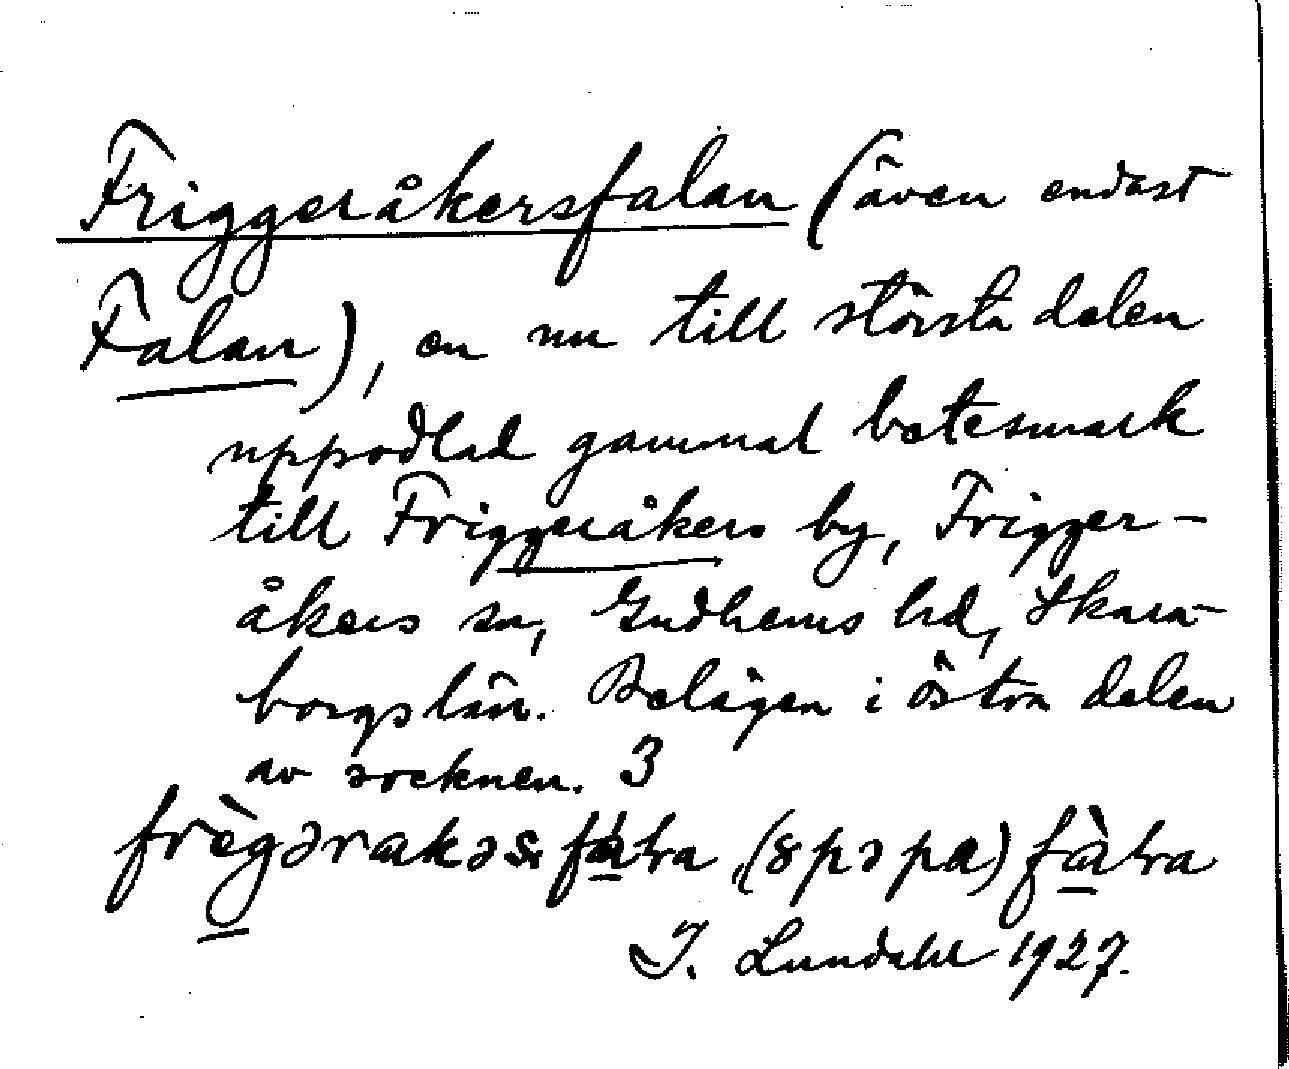 Friggeråkersfalan (även endast
Falan), en nu till största delen
uppodlad gammal betesmark
till Friggeråkers by, Frigger-
åkers sn, Gudhems hd, Skara-
borgs län. Belägen i östra delen
av socknen. 3
frègərakəs fàlra (8pəpa) fàlra
I. Lundahl 1927.